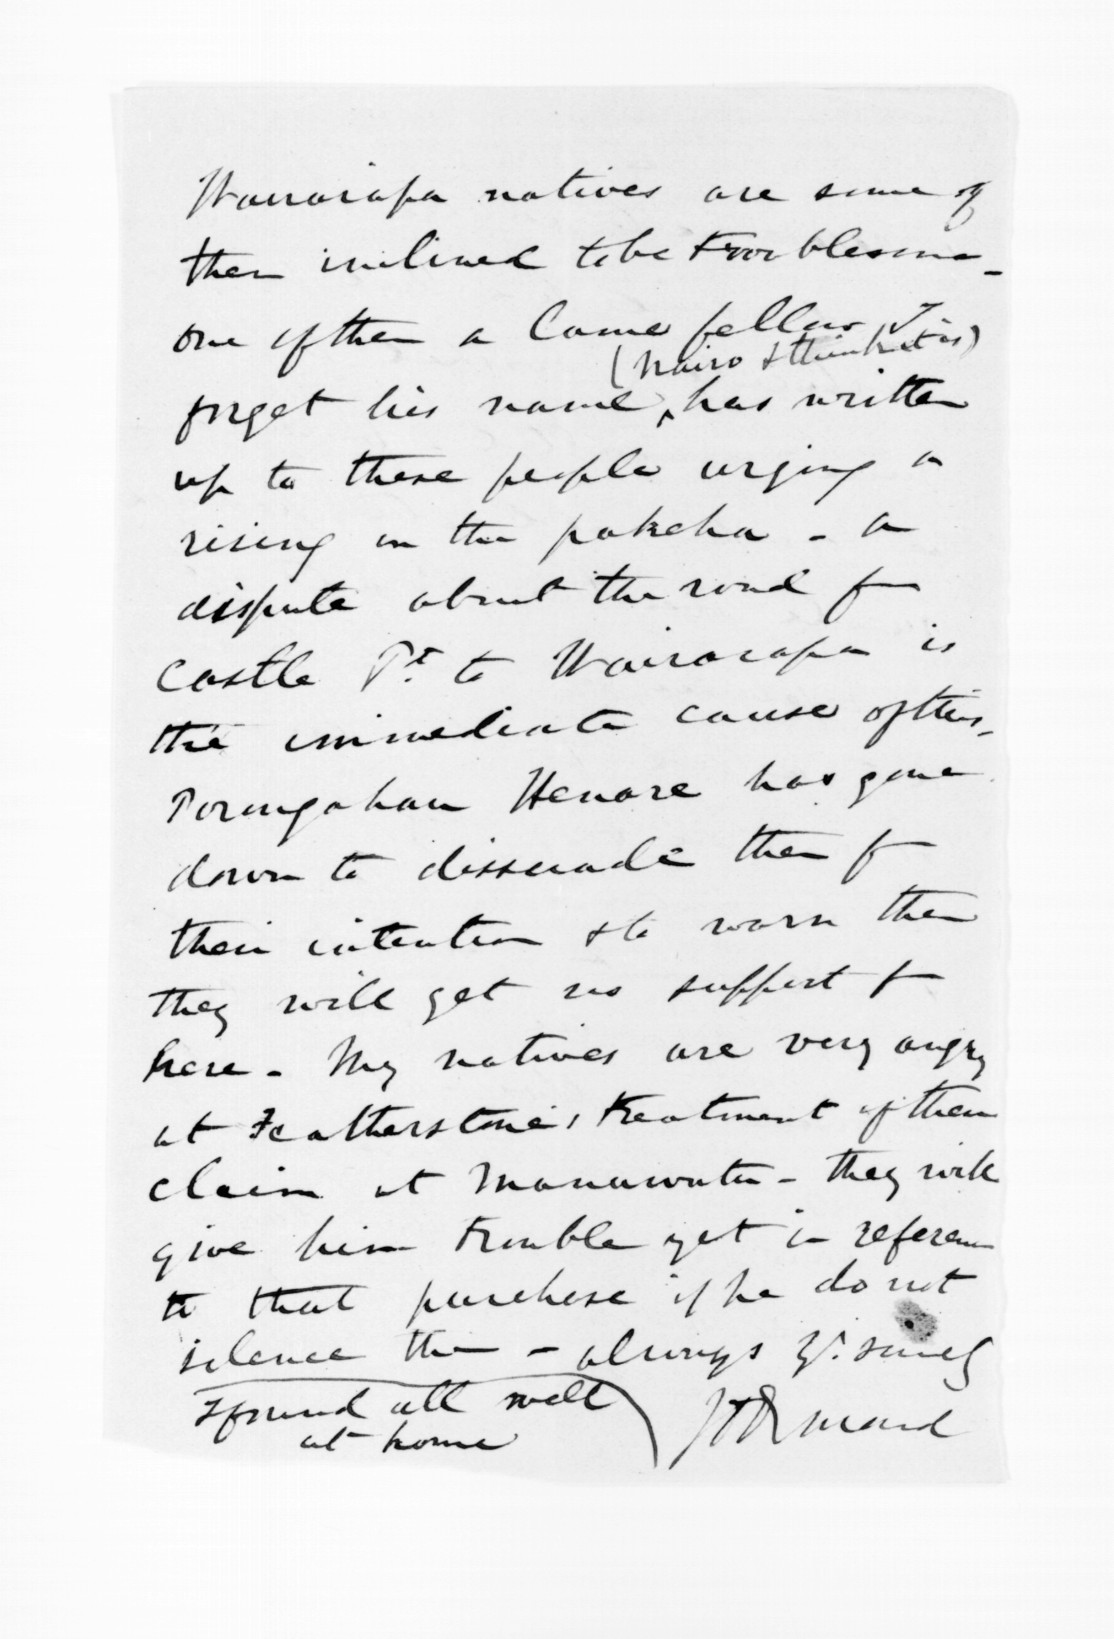 Wairarapa natives are some of
them inclined to be troublesome -
one of them a lame fellow I
(Wairo I think it is)
forget his name ^ has written
up to these people urging a
rising on the pakeha - a
dispute about the road fm
Castle Pt. to Wairarapa is
the immediate cause of this -
Porangahau Henare has gone
down to dissuade them fm
their intention & to warn them
they will get no support fm
here - My natives are very angry
at Featherstone's treatment of their
claim at Manawatu - they will
give him trouble yet in reference
to that purchase if he do not
silence them - always yr. sincely
I found all well
at home
JD Ormond